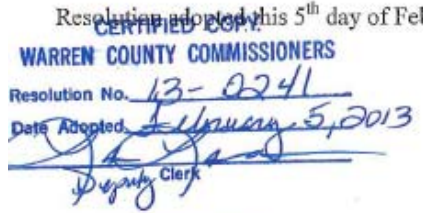 Resolution adopted this 5th day of Feb
CERTIFIED COPY
WARREN COUNTY COMMISSIONERS
Resolution No. 13-0241
Date Adopted February 5, 2013
Deputy Clerk